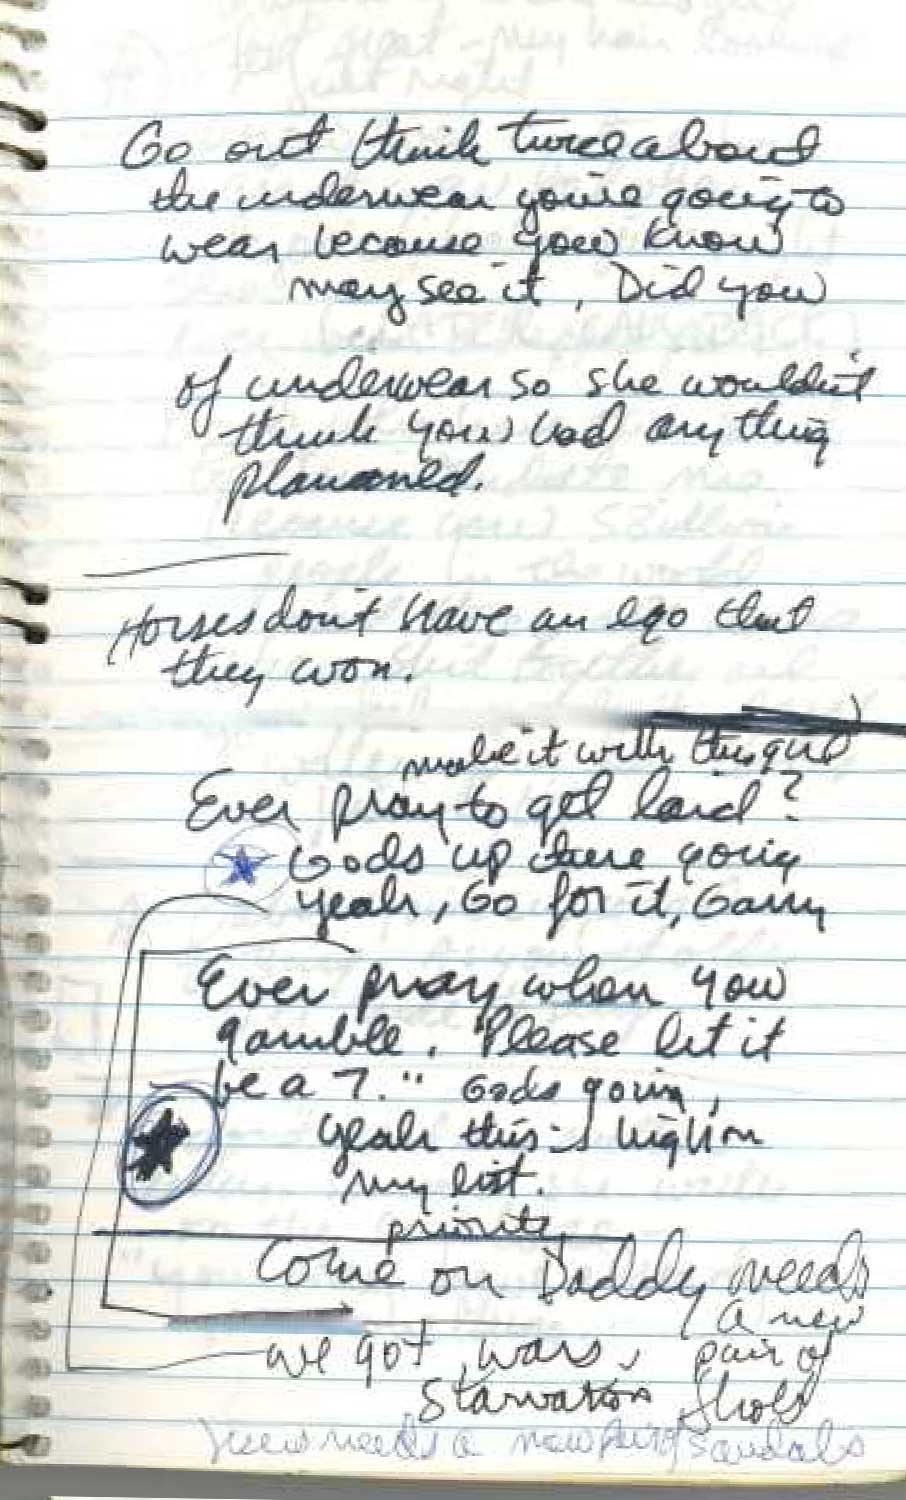 Go out think twice about
the underwear you're going to
wear because you know
may see it. Did you
of underwear so she wouldn't
think you had anything
planned.
Horses don't have an ego that
they won.
make it with this girl
Ever pray to get laid?
Gods up there going
yeah, Go for it, Garry
Ever pray when you
gamble. "Please let it
be a 7." Gods going,
yeah this is high on
my list.
priority
Come on Daddy needs
a new
pair of
shoes
we got wars,
starvation
needs a new pair sandals